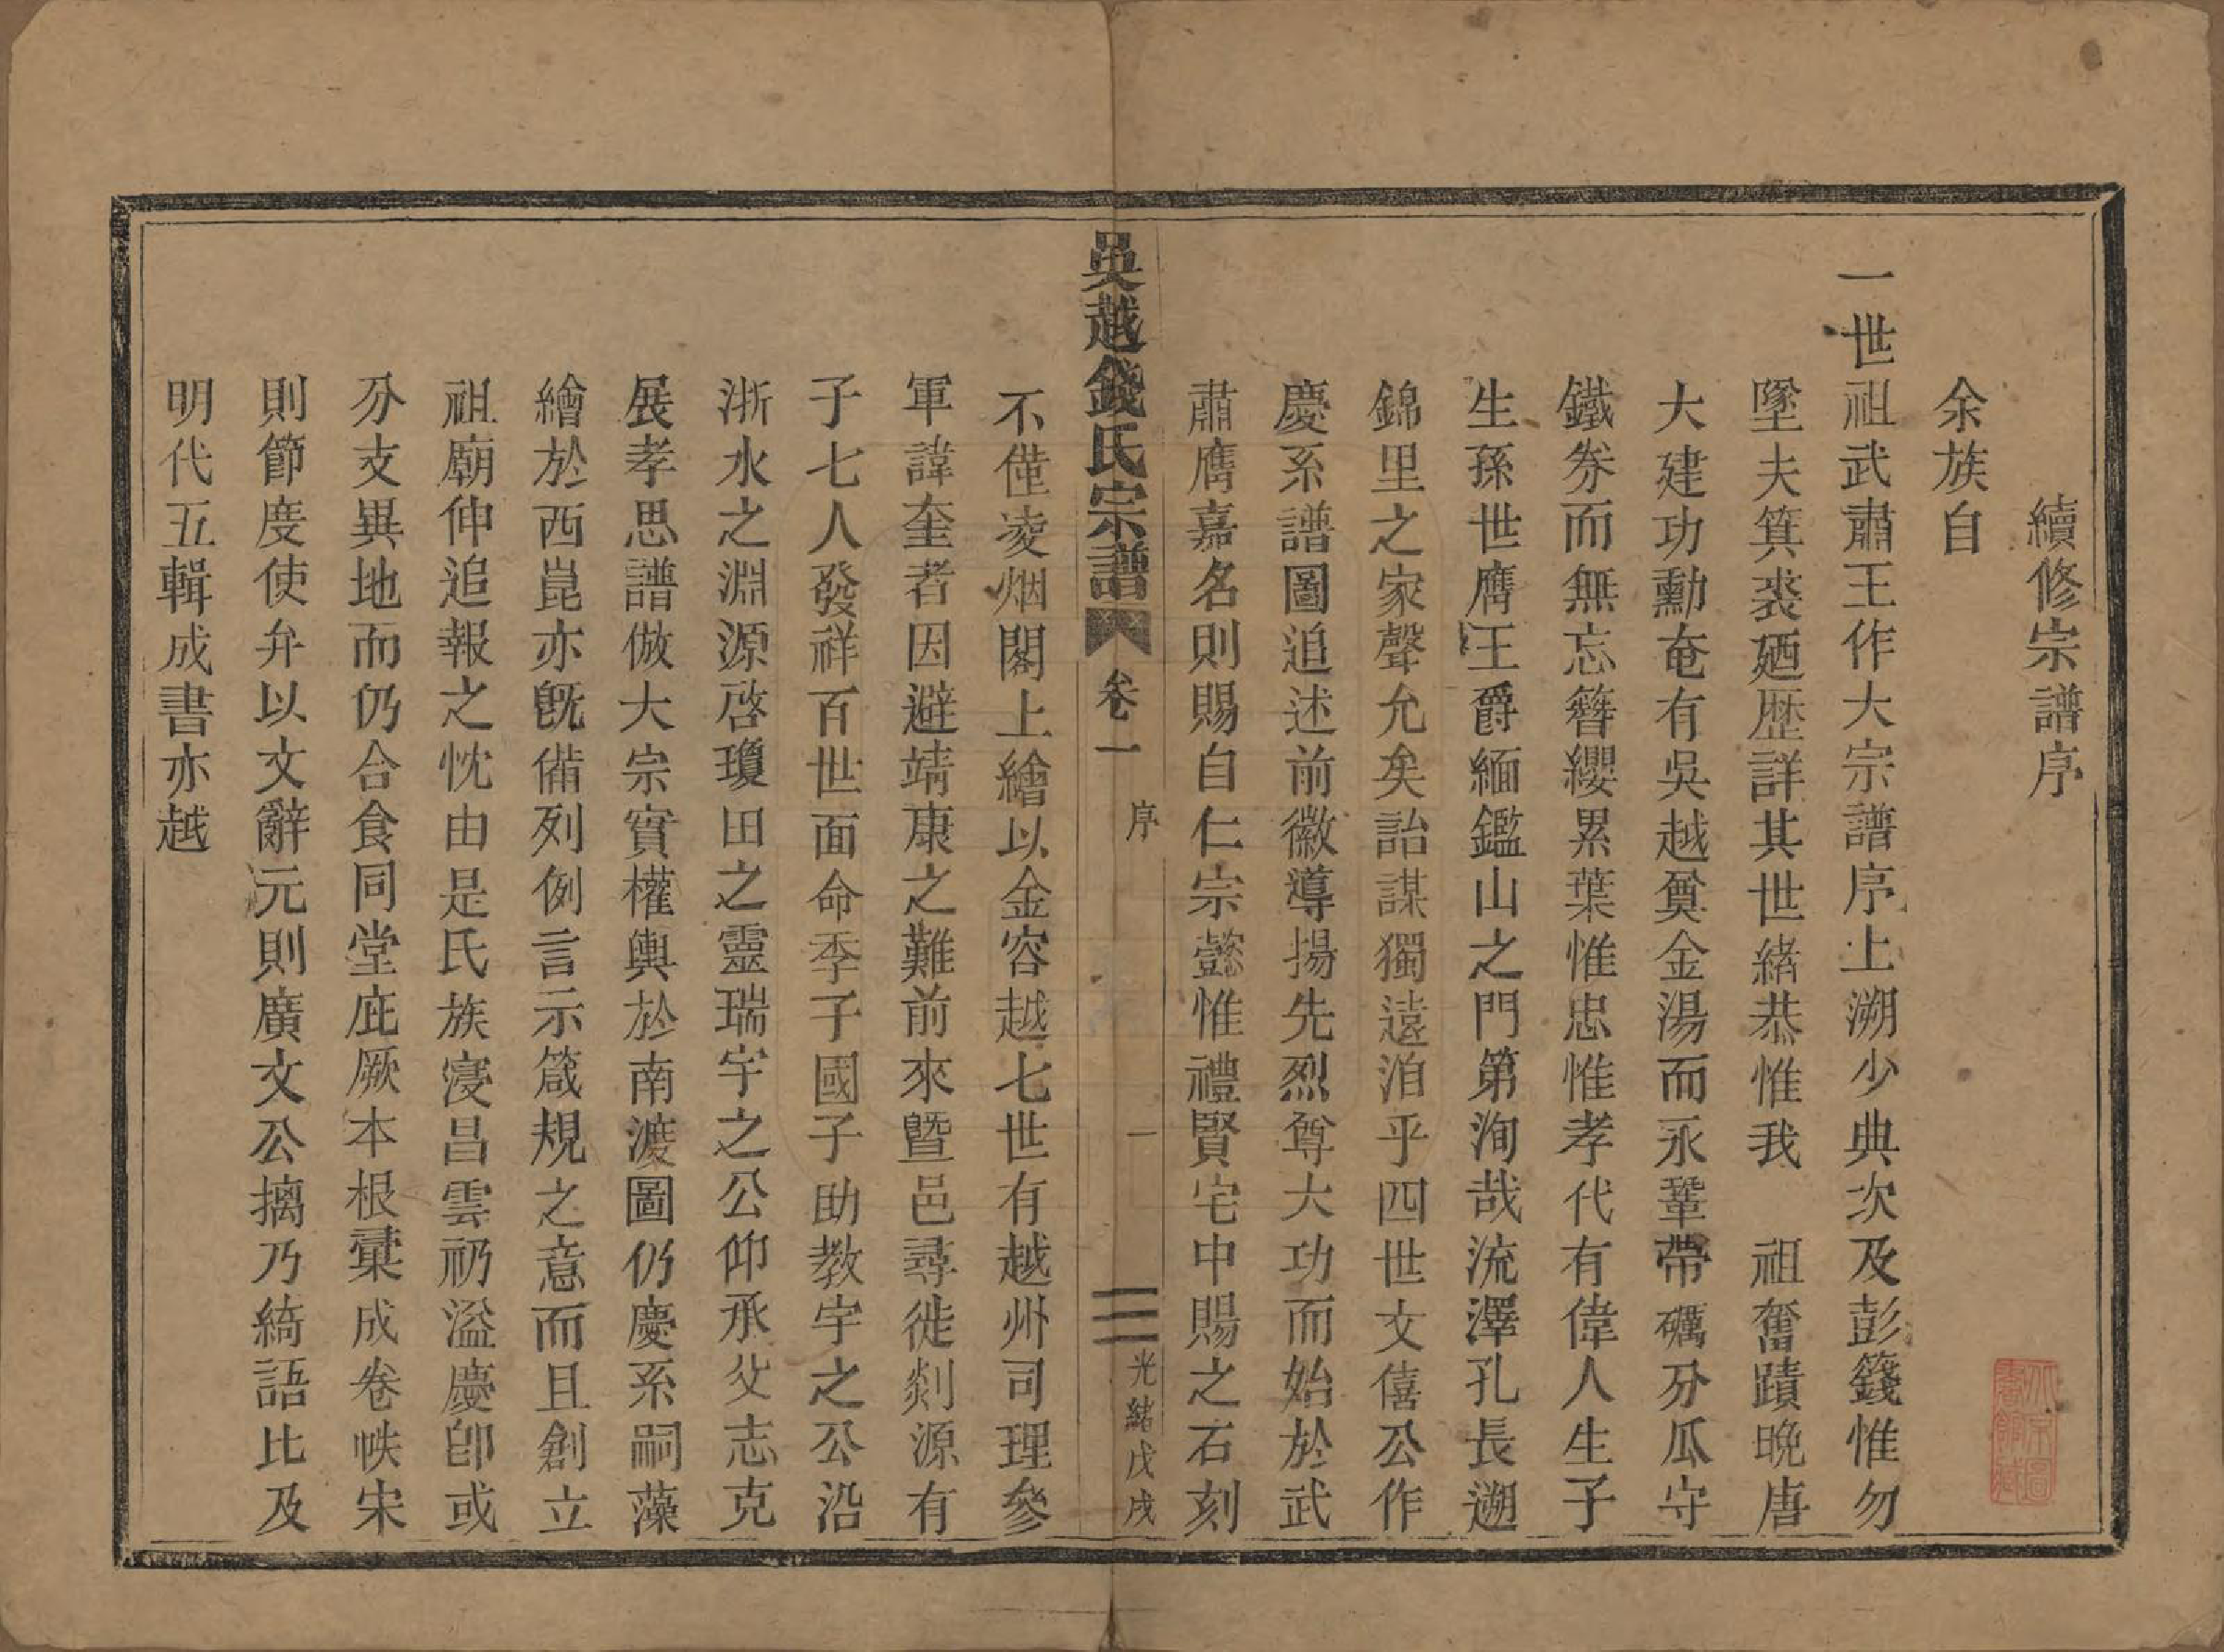 續修宗譜序
余族自
一世祖武肅王作大宗譜序上溯少典次及彭籛惟勿
墜夫箕裘廼歷詳其世緒恭惟我　祖奮蹟晚唐
大建功勳奄有吳越奠金湯而永鞏帶礪分瓜守
鐵券而無忘簪纓累葉惟忠惟孝代有偉人生子
生孫世膺王爵緬鑑山之門第洵哉流澤孔長遡
錦里之家聲允矣詒謀獨遠洎乎四世文僖公作
慶系譜圖追述前徽導揚先烈尊大功而始於武
肅膺嘉名則賜自仁宗懿惟禮賢宅中賜之石刻
吳越錢氏宗譜
卷一
序
一
光緒戊戌
不僅凌烟閣上繪以金容越七世有越州司理參
軍諱奎者因避靖康之難前來暨邑尋徙剡源有
子七人發祥百世面命季子國子助教宇之公沿
浙水之淵源啓瓊田之靈瑞宇之公仰承父志克
展孝思譜倣大宗實權輿於南渡圖仍慶系嗣藻
繪於西崑亦旣備列例言示箴規之意而且創立
祖廟伸追報之忱由是氏族寖昌雲礽溢慶卽或
分支異地而仍合食同堂庇厥本根彚成卷帙宋
則節度使弁以文辭元則廣文公摛乃綺語比及
明代五輯成書亦越